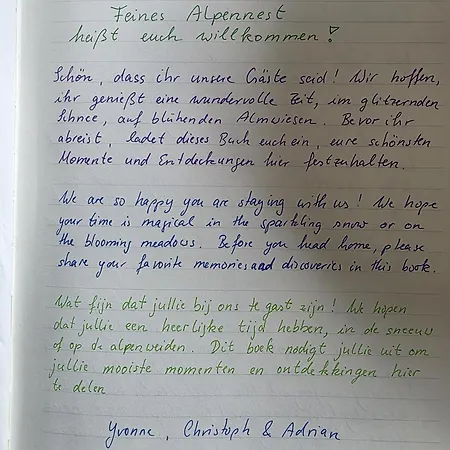 Feines Alpennest
heißt euch willkommen!
Schön, dass ihr unsere Gäste seid! Wir hoffen,
ihr genießt eine wundervolle Zeit, im glitzernden
Schnee, auf blühenden Almwiesen. Bevor ihr
abreist, ladet dieses Buch euch ein, eure schönsten
Momente und Entdeckungen hier festzuhalten.
We are so happy you are staying with us! We hope
your time is magical in the sparkling snow or on
the blooming meadows. Before you head home, please
share your favorite memories and discoveries in this book.
Wat fijn dat jullie bij ons te gast zijn! We hopen
dat jullie een heerlijke tijd hebben, in de sneeuw
of op de alpenweiden. Dit boek nodigt jullie uit om
jullie mooiste momenten en ontdekkingen hier
te delen
Yvonne, Christoph & Adrian